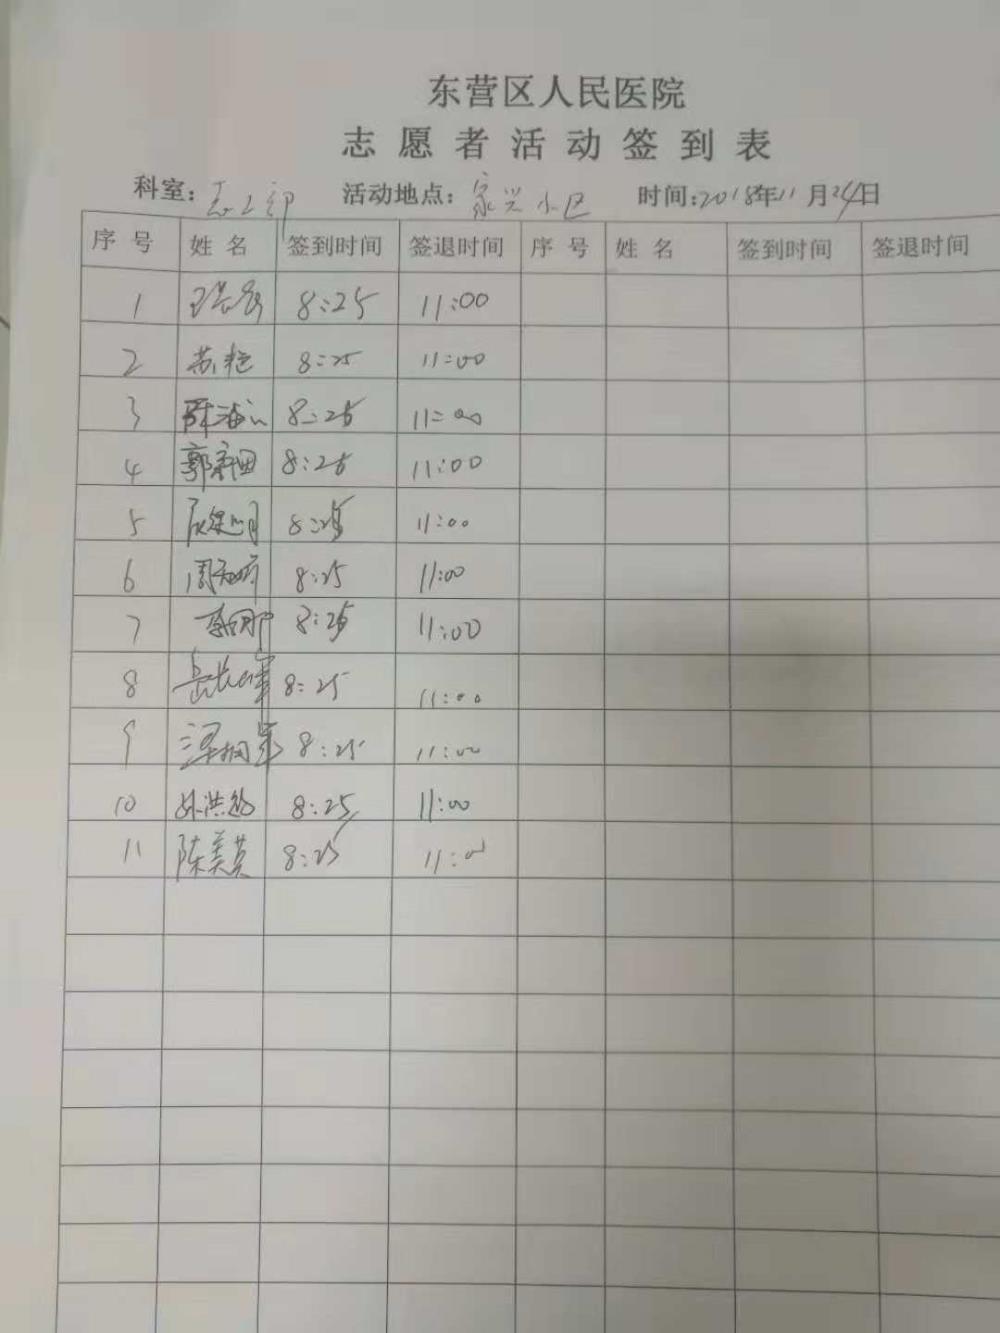 东营区人民医院
志愿者活动签到表
科室: 活动地点: 家兴小区 时间:2018年11月24日
序号 姓名 签到时间 签退时间 序号 姓名 签到时间 签退时间
1 8:25 11:00
2 苏 8:25 11:00
3 8:25 11:00
4 郭 8:25 11:00
5 8:25 11:00
6 周 8:25 11:00
7 8:25 11:00
8 岳 8:25 11:00
9 8:25 11:00
10 孙洪 8:25 11:00
11 陈美英 8:25 11:00